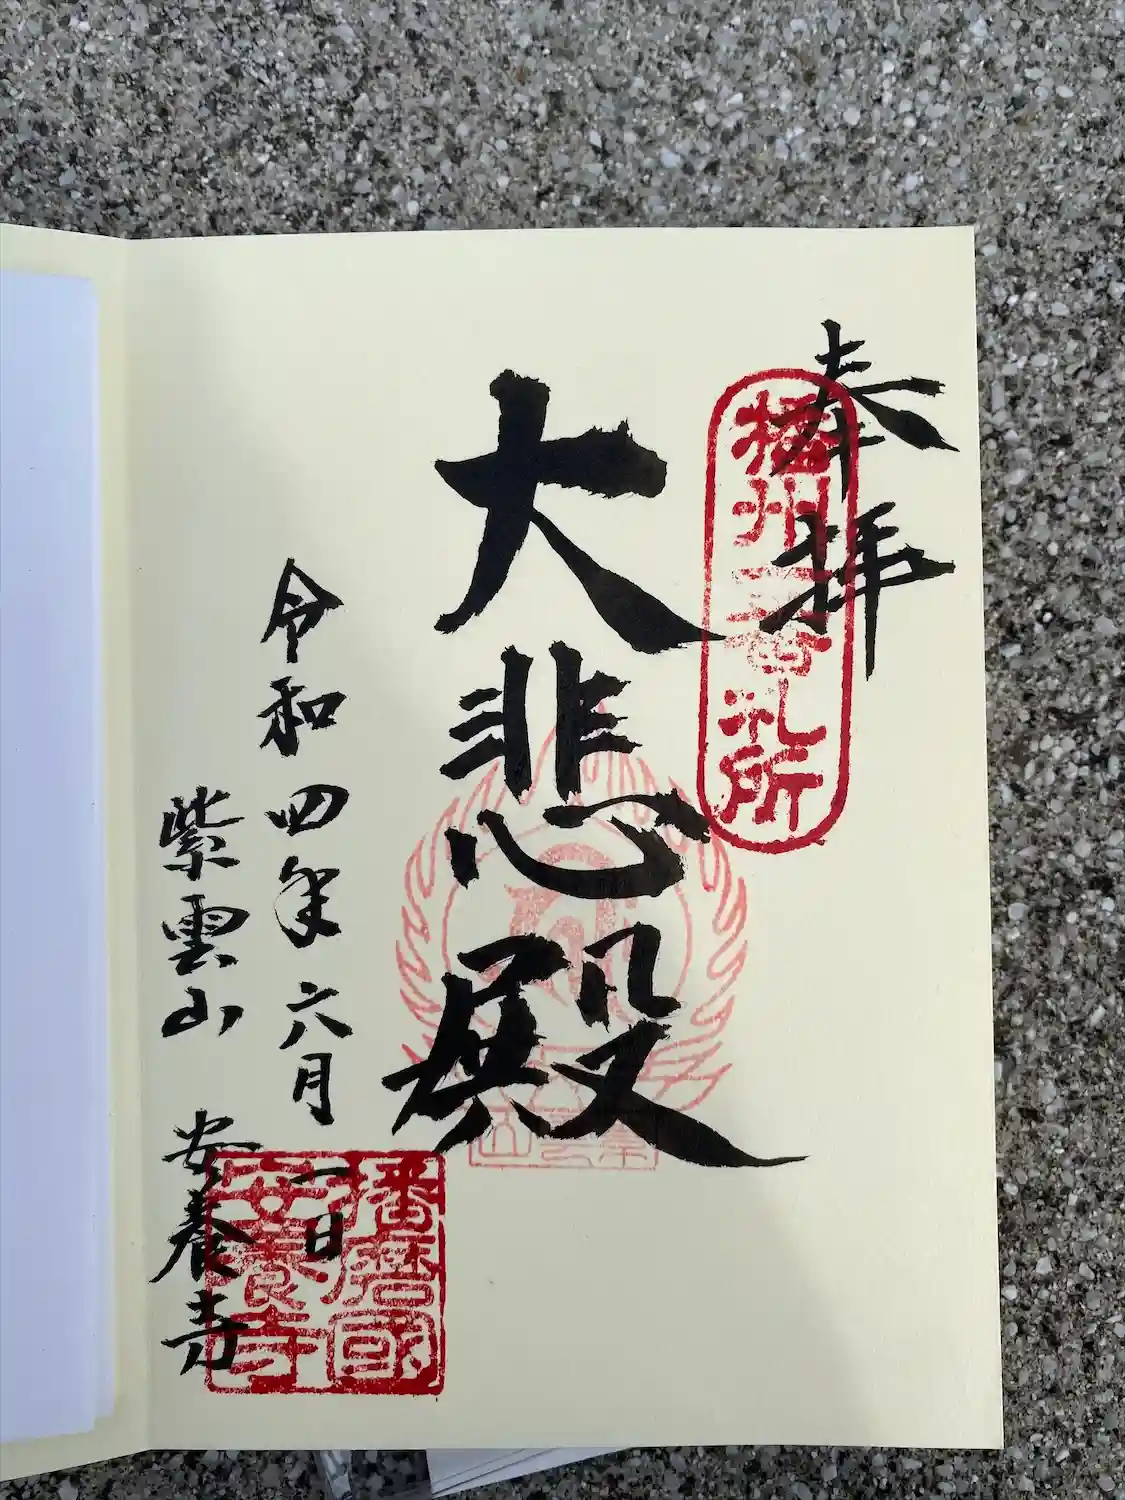 奉拝
播州二番札所
大悲殿
令和四年六月一日
紫雲山 安養寺
播磨國
安養寺